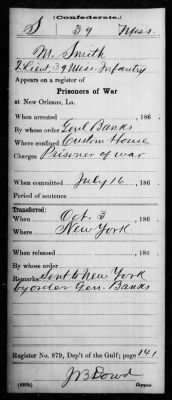 (Confederate.)
S 39 Miss.
M. Smith
2 Lieut, 39 Miss. Infantry
Appears on a register of
Prisoners of War
at New Orleans, La.
When arrested , 186 .
By whose order Genl Banks
Where confined Custom House
Charges Prisoner of war
When committed July 16 , 186 .
Period of sentence
Transferred:
When Oct. 3 , 186 .
Where New York
When released , 186 .
By whose order
Remarks: Sent to New York
by order Gen. Banks
Register No. 879, Dep't of the Gulf; page 141
Copyist.